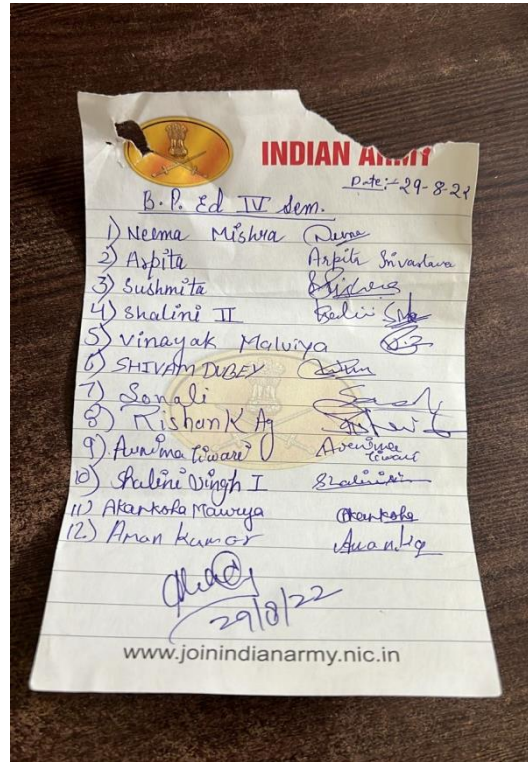 INDIAN ARMY
Date:- 29-8-22
B. P. Ed IV Sem.
1) Neema Mishra
2) Arpita Arpita Srivastava
3) Sushmita
4) Shalini II
5) Vinayak Malviya
6) SHIVAM DUBEY
7) Sonali
8) Rishank Ag
9) Avnima Tiwari
10) Shalini Singh I
11) Akanksha Maurya Akanksha
12) Aman Kumar
29/8/22
www.joinindianarmy.nic.in